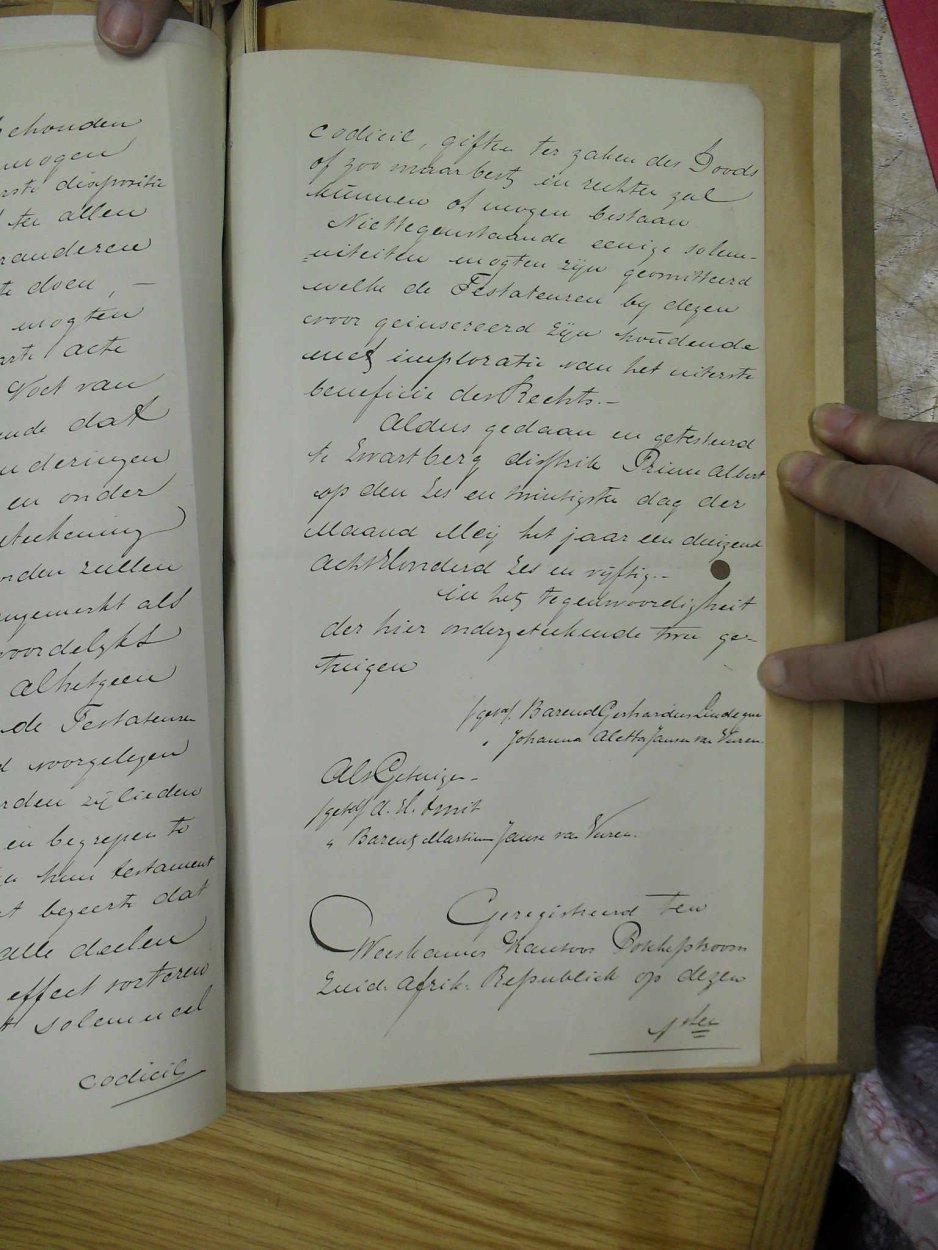 behouden
mogen
dispositie
ter allen
veranderen
te doen, —
mogten
acte
Voet van
dat
veranderingen
en onder
teekening
worden zullen
aangemerkt als
woordelyks
alhetgeen
de Testateuren
voorgelegen
zijlieden
en begrepen te
hun testament
begeerte dat
alle doelen
effect sorteren
solemneel
codicil
codicil, giften ter zaken des Doods
of zoo maar best in rechten zal
kunnen of mogen bestaan
Niettegenstaande eenige solem-
-niteiten mogten zyn geomitteerd
welke de Testateuren by dezen
voor geinsereerd zyn houdende
met imploratie van het uiterste
beneficie des Rechts.—
Aldus gedaan en getesteerd
te Zwartberg distrik Prince Albert
op den Zes en twintigste dag der
Maand Mey het jaar een duizend
Acht Honderd Zes en vyftig.—
in het tegenwoordigheit
der hier ondergeteekende twee ge-
tuigen
/get/. Barend Gerhardus Lindeque
„ Johanna Aletta Janse van Vuren.
Als Getuigen
/get/ A. H.
„ Barend Janse van Vuren.
Geregistreerd ten
Weeskamer Kantoor Potchefstroom
Zuid. Afrik. Republiek op dezen
1ster